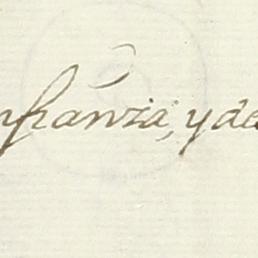 nfianza, y de